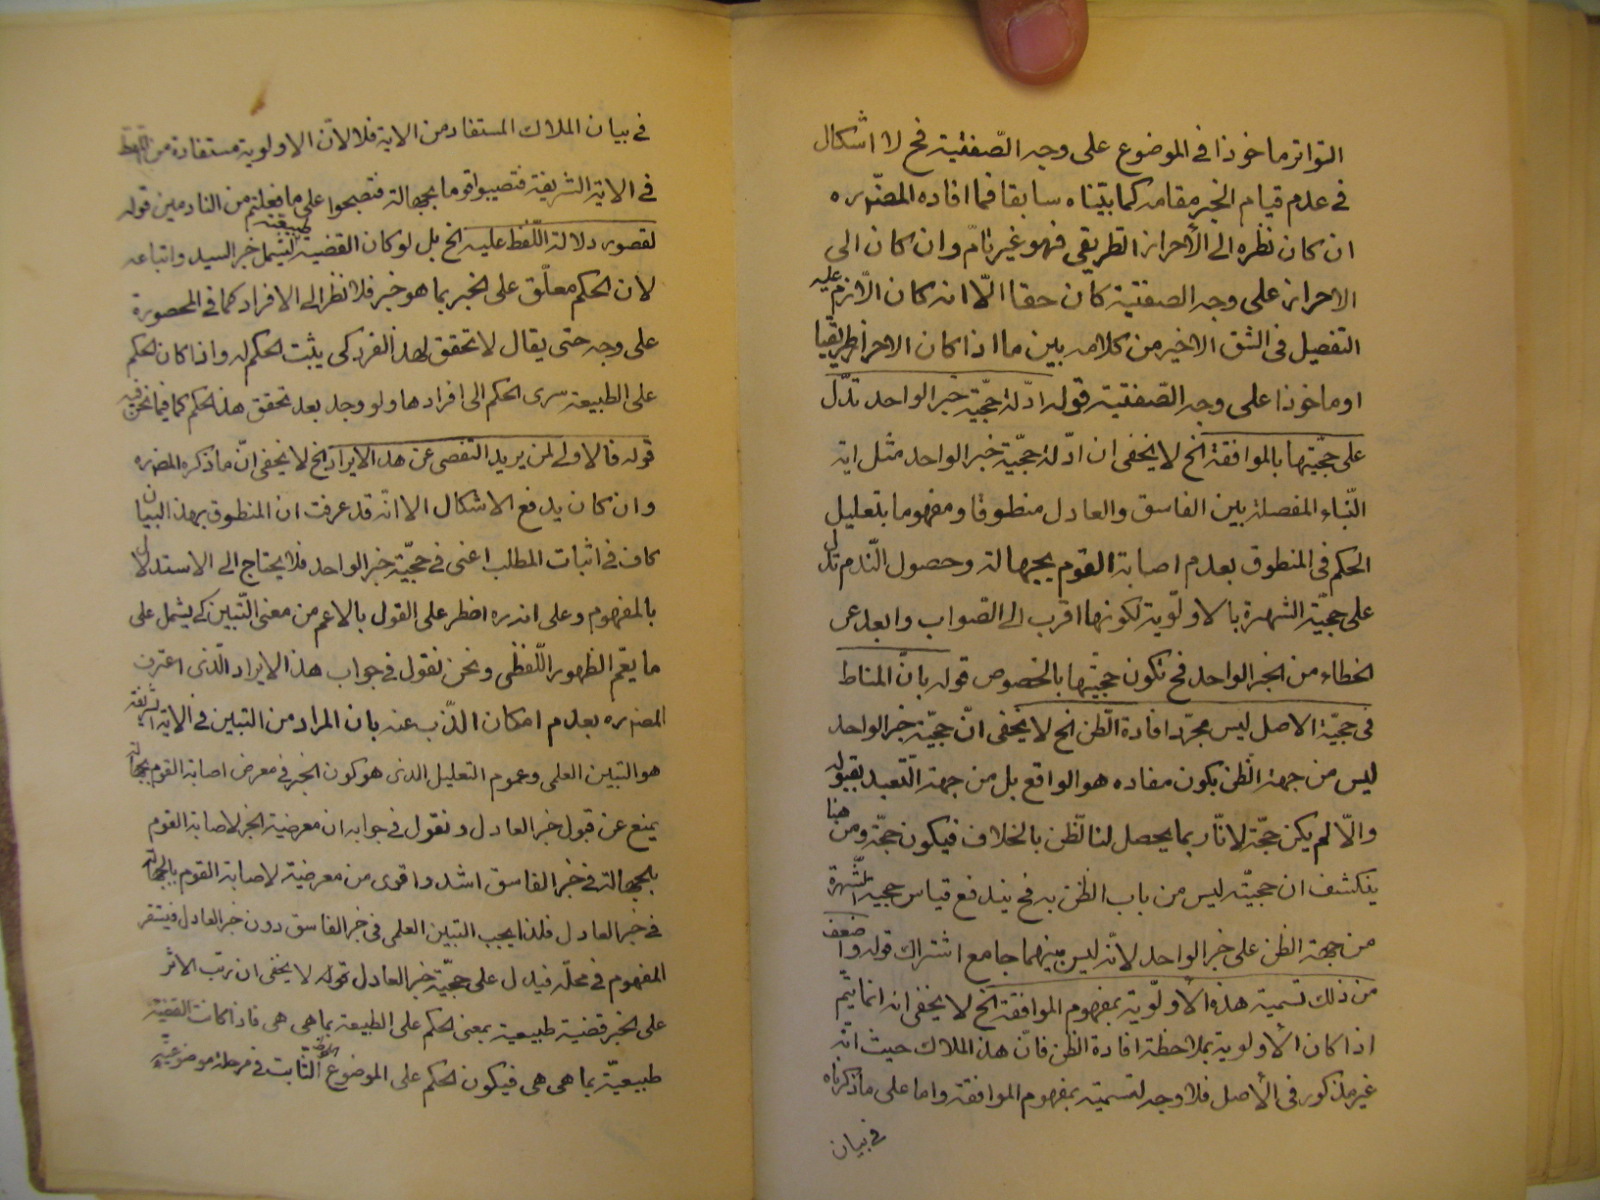 التواتر ماخوذا فى الموضوع على وجه الصّفتيّة فح لا اشكال
فى عدم قيام الخبر مقامه كما بيّناه سابقا فما افاده المصنّف ره
ان كان نظره الى الأحراز الطريقى فهو غير تامّ وان كان الى
الاحراز على وجه الصفتيّة كان حقا الّا انه كان الّازم عليه
التفصيل فى الشق الاخير من كلامه بين ما اذا كان الاحراز طريقيا
او ماخوذا على وجه الصّفتيّة قوله ادّلة حجّيّة خبر الواحد تدّل
على حجّيتها بالموافقة الخ لا يخفى ان ادّلة حجّيّة خبر الواحد مثل اية
النّباء المفصلة بين الفاسق والعادل منطوقا ومفهوما بتعليل
الحكم فى المنطوق بعدم اصابة القوم بجهالة وحصول النّدم تدل
على حجيّة الشهرة بالاولّوية لكونها اقرب الى الصّواب وابعد عن
الخطاء من الخبر الواحد فح تكون حجيّتها بالخصوص قوله بانّ المناط
فى حجيّة الاصل ليس مجرّد افادة الظن الخ لا يخفى انّ حجيّة خبر الواحد
ليس من جهة الظن بكون مفاده هو الواقع بل من جهة التّعبد بقبوله
والّا لم يكن حجّة لانّا ربما يحصل لنا لظن بالخلاف فيكون حجّة ومن هنا
ينكشف ان حجيتّه ليس من باب الظن به فح يندفع قياس حجيه الشّهرة
من جهة الظن على خبر الواحد لانّه ليس بينهما جامع اشتراك قوله واضعف
من ذلك تسمية هذه الأولّوية بمفهوم الموافقة الخ لا يخفى انه انما يتّم
اذا كان الأولوية بملاحظة افادة الظن فانّ هذا الملاك حيث انّه
غير مذكور فى الأصل فلا وجه لتسميته بمفهوم الموافقة واما على ما ذكرناه
فى بيان
فى بيان الملاك المستفاد من الاية فلا لانّ الاولوية مستفادة من اللفظ
فى الاية الشريفة فتصيبوا قوما بجهالة فتصبحوا على ما فعلتم من النادمين قوله
لقصور دلالة اللّفظ عليه الخ بل لو كان القضية طبيعيّة ليشمل خبر السيد واتباعه
لان الحكم معلّق على الخبر بما هو خبر فلا نظر الى الافراد كما فى المحصورة
على وجه حتى يقال لا تحقق لهذا الفرد كى يثبت الحكم له واذا كان الحكم
على الطبيعة سرى الحكم الى افرادها ولو وجد بعد تحقق هذا الحكم كما فيما نحن فيه
قوله فالاولى لمن يريد التفصى عن هذا الايراد الخ لا يخفى انّ ما ذكره المصنف ره
وان كان يدفع الاشكال الا انّه قد عرفت ان المنطوق بهذا البيان
كاف فى اثبات المطلب اعنى فى حجيّة خبر الواحد فلا يحتاج الى الاستدلال
بالمفهوم وعلى انه ره اضطر على القول بالاعم من معنى التّبين كى يشمل على
ما يعّم الظهور اللّفظى ونحن نقول فى جواب هذا الايراد الّذى اعترف
المصنف ره بعدم امكان الذّب عنه بان المراد من التبين فى الاية الشريفة
هو التبين العلمى وعموم التعليل الذى هو كون الخبر فى معرض اصابة القوم بجهالة
يمنع عن قبول خبر العادل ونقول فى جوابه ان معرضية الخبر لاصابة القوم
بالجهالة فى خبر الفاسق اشد واقوى من معرضية لاصابة القوم بالجهالة
فى خبر العادل فلذا يجب التبين العلمى فى خبر الفاسق دون خبر العادل فيستقر
المفهوم فى محلّه فيدل على حجيّة خبر العادل قوله لا يخفى ان رتّب الاثر
على الخبر قضية طبيعية بمعنى الحكم على الطبيعة بما هى هى فاذا كانت القضية
طبيعيّة بما هى هى فيكون الحكم على الموضوع الثابت فى مرحلة موضوعيّته